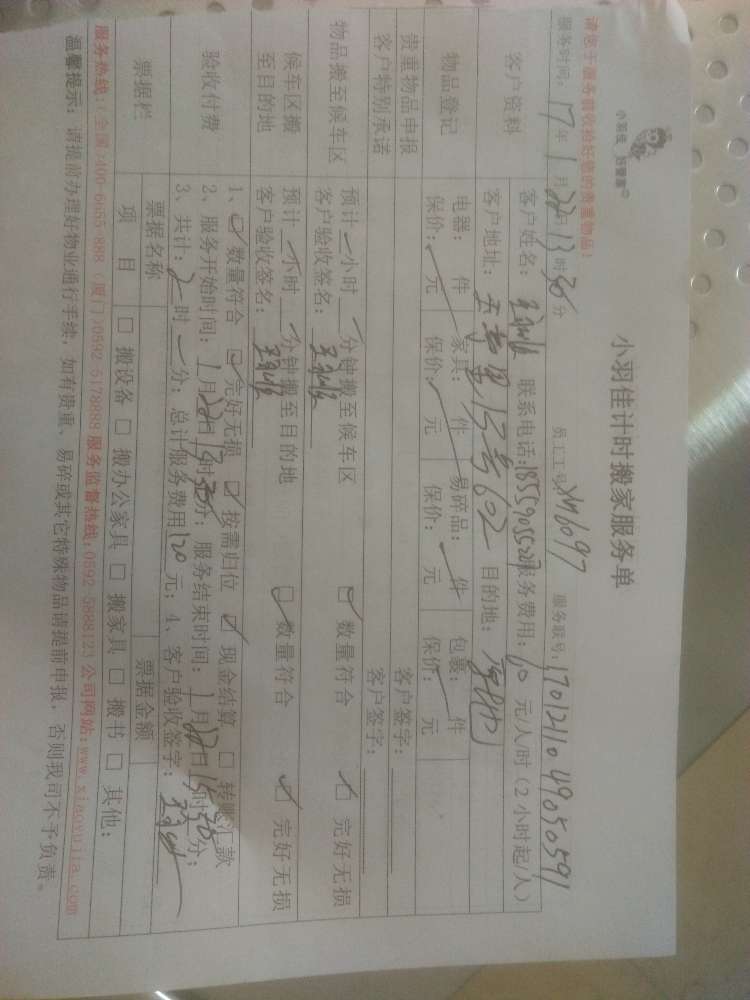 小羽佳 好管家®
小羽佳计时搬家服务单
请您于服务前收拾好您的贵重物品！
员工工号: XM6097 服务联号: 1701211049050591
服务时间: 17年1月22日13时35分
客户资料
客户姓名: 联系电话: 18559055209 服务费用: 60元/人时（2小时起/人）
客户地址: 15号602 目的地:
物品登记
电器: 件 家具: 件 易碎品: 件 包裹: 件
保价: 元 保价: 元 保价: 元 保价: 元
贵重物品申报 客户签字:
客户特别承诺 客户签字:
物品搬至候车区
预计 小时 分钟搬至候车区 ☑ 数量符合 ☑ 完好无损
客户验收签名:
候车区搬至目的地
预计 小时 分钟搬至目的地 ☑ 数量符合 ☑ 完好无损
客户验收签名:
验收付费
1、☑ 数量符合 ☑ 完好无损 ☑ 按需归位 ☑ 现金结算 □ 转帐汇款
2、服务开始时间: 1月22日13时分; 服务结束时间: 1月22日15时50分;
3、共计: 2时 分; 总计服务费用120元; 4、客户验收签字:
票据栏 票据名称 票据金额
项目 □ 搬设备 □ 搬办公家具 □ 搬家具 □ 搬书 □ 其他:
服务热线: (全国)400-6655-888 (厦门)0592-5178888 服务监督热线: 0592-5888123 公司网站: www.xiaoyujia.com
温馨提示: 请提前办理好物业通行手续, 如有贵重、易碎或其它特殊物品请提前申报, 否则我司不予负责。